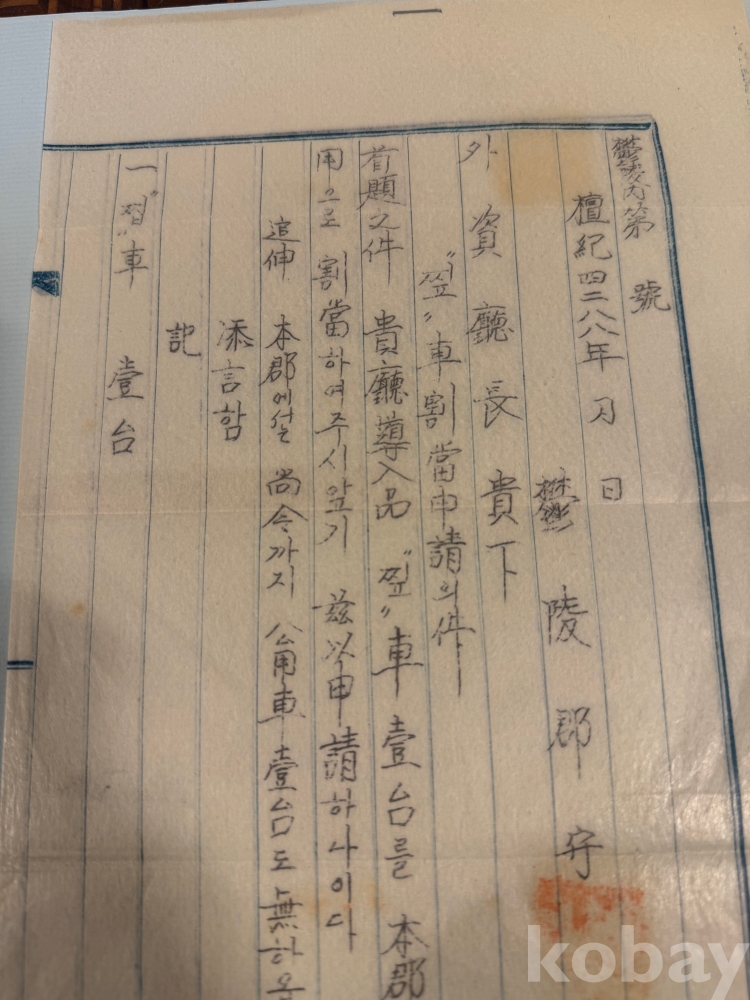 鬱陵內第 號
檀紀四二八八年 月 日
鬱陵郡守
外資廳長 貴下
"찦"車割當申請의件
首題之件 貴廳導入品 "찦"車壹台를 本郡
用으로 割當하여주시앞기 玆以申請하나이다
追伸 本郡에설 尚今까지 公用車壹台도 無하옴
添言함
記
一 "찦"車 壹台
kobay